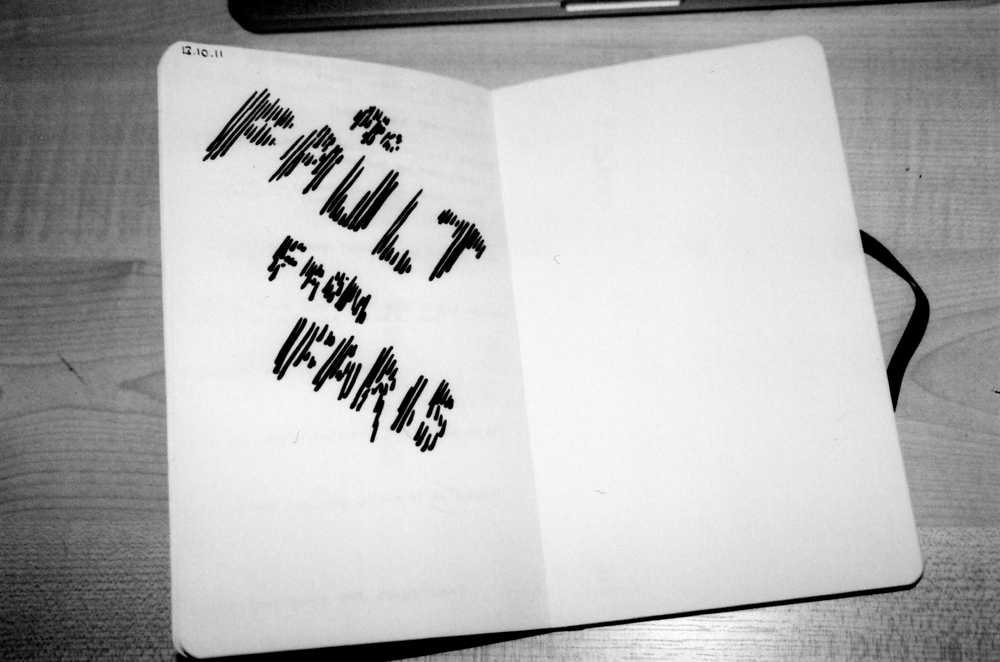 13.10.11
To
FAULT
FROM
FARIS